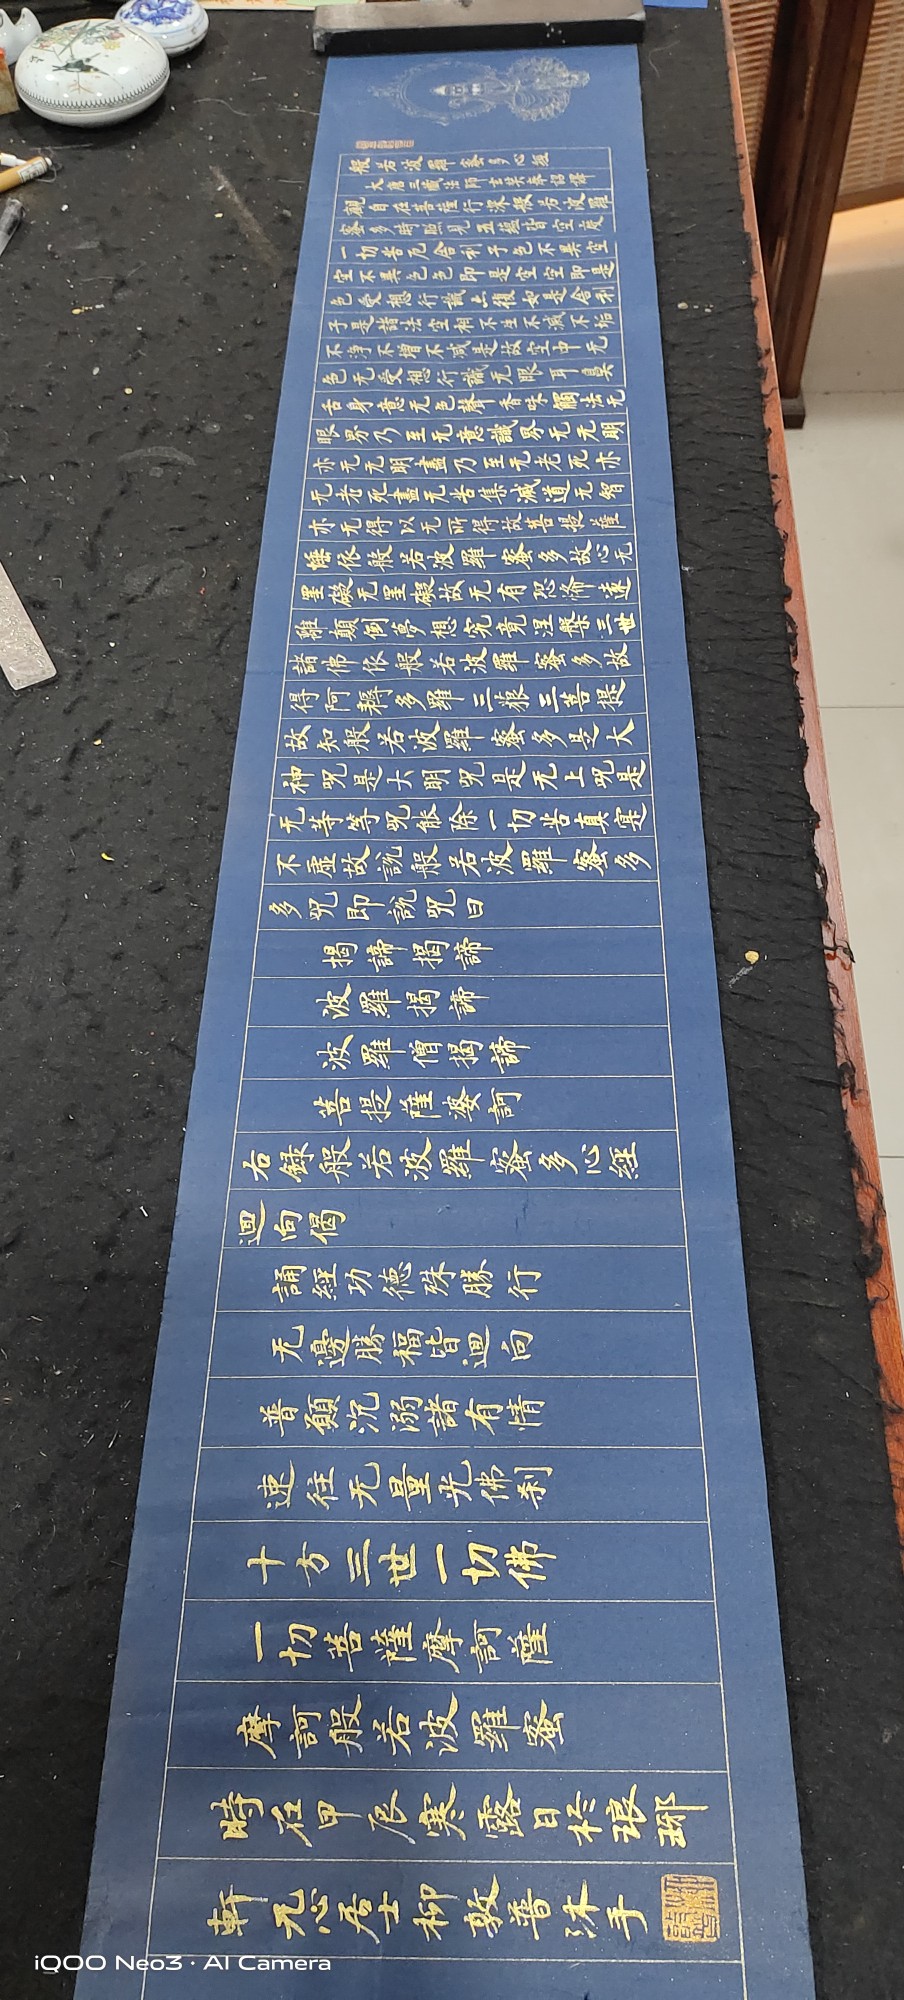 般若波羅蜜多心經
大唐三藏法師玄奘奉詔譯
觀自在菩薩行深般若波羅
蜜多時照見五蘊皆空度
一切苦厄舍利子色不異空
空不異色色即是空空即是
色受想行識亦復如是舍利
子是諸法空相不生不滅不垢
不淨不增不減是故空中无
色无受想行識无眼耳鼻
舌身意无色聲香味觸法无
眼界乃至无意識界无无明
亦无无明盡乃至无老死亦
无老死盡无苦集滅道无智
亦无得以无所得故菩提薩
埵依般若波羅蜜多故心无
罣礙无罣礙故无有恐怖遠
離顛倒夢想究竟涅槃三世
諸佛依般若波羅蜜多故
得阿耨多羅三藐三菩提
故知般若波羅蜜多是大
神咒是大明咒是无上咒是
无等等咒能除一切苦真寔
不虛故說般若波羅蜜多
多咒即說咒曰
揭諦揭諦
波羅揭諦
波羅僧揭諦
菩提薩婆訶
右録般若波羅蜜多心經
迴向偈
誦經功德殊勝行
无邊勝福皆迴向
普願沉溺諸有情
速往无量光佛刹
十方三世一切佛
一切菩薩摩訶薩
摩訶般若波羅蜜
時在甲辰寒露日於琅琊
軒无心居士柳敦普沐手
iQOO Neo3 · AI Camera